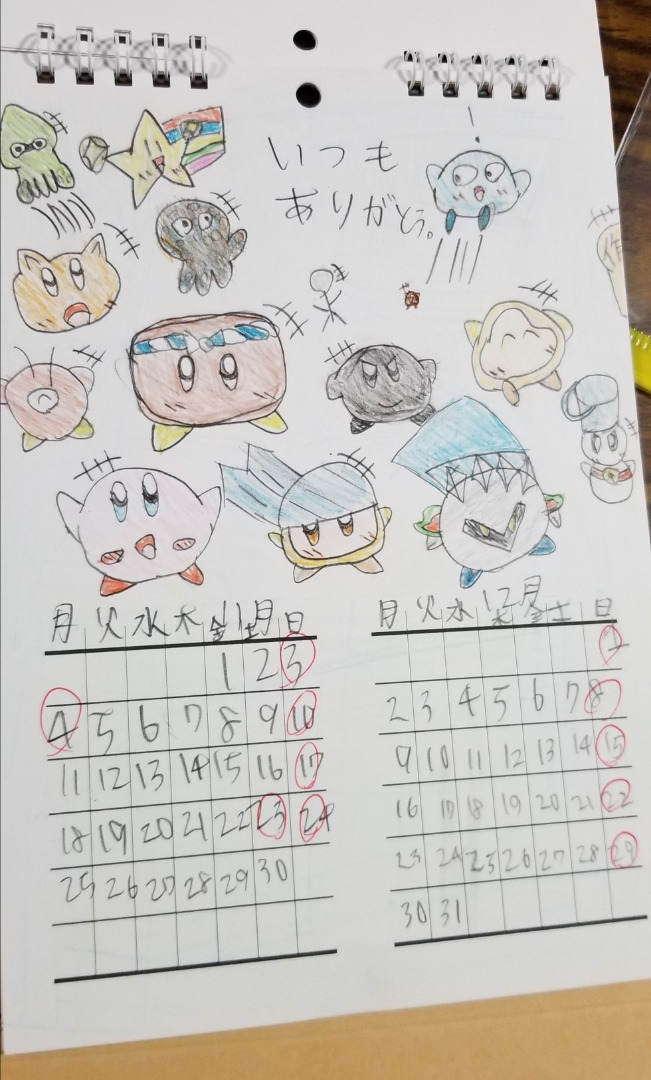 いつも
ありがとう。
作
11月
月 火 水 木 金 土 日
1 2 3
4 5 6 7 8 9 10
11 12 13 14 15 16 17
18 19 20 21 22 23 24
25 26 27 28 29 30
12月
月 火 水 木 金 土 日
1
2 3 4 5 6 7 8
9 10 11 12 13 14 15
16 17 18 19 20 21 22
23 24 25 26 27 28 29
30 31